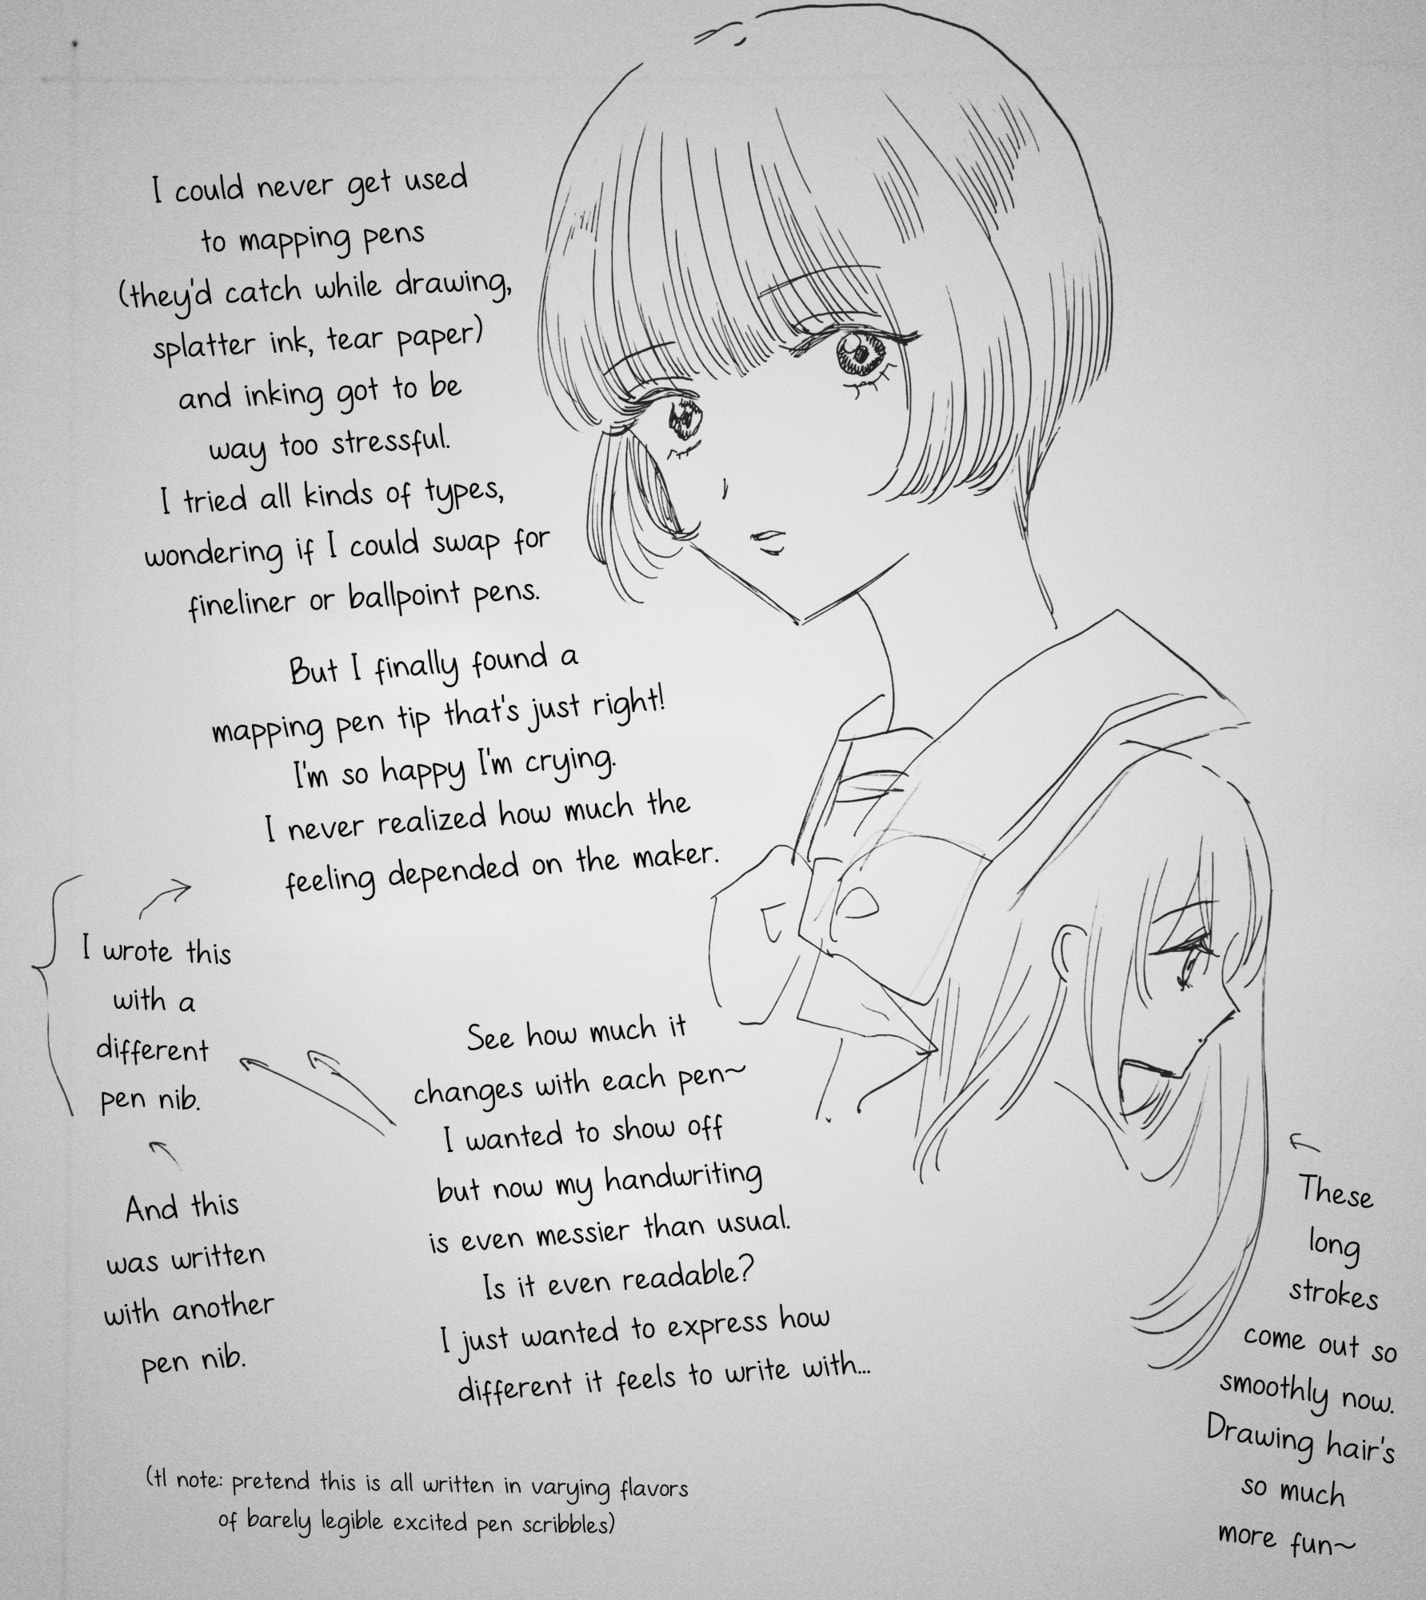 I could never get used
to mapping pens
(they'd catch while drawing,
splatter ink, tear paper)
and inking got to be
way too stressful.
I tried all kinds of types,
wondering if I could swap for
fineliner or ballpoint pens.
But I finally found a
mapping pen tip that's just right!
I'm so happy I'm crying.
I never realized how much the
feeling depended on the maker.
I wrote this
with a
different
pen nib.
And this
was written
with another
pen nib.
See how much it
changes with each pen~
I wanted to show off
but now my handwriting
is even messier than usual.
Is it even readable?
I just wanted to express how
different it feels to write with...
These
long
strokes
come out so
smoothly now.
Drawing hair's
so much
more fun~
(tl note: pretend this is all written in varying flavors
of barely legible excited pen scribbles)